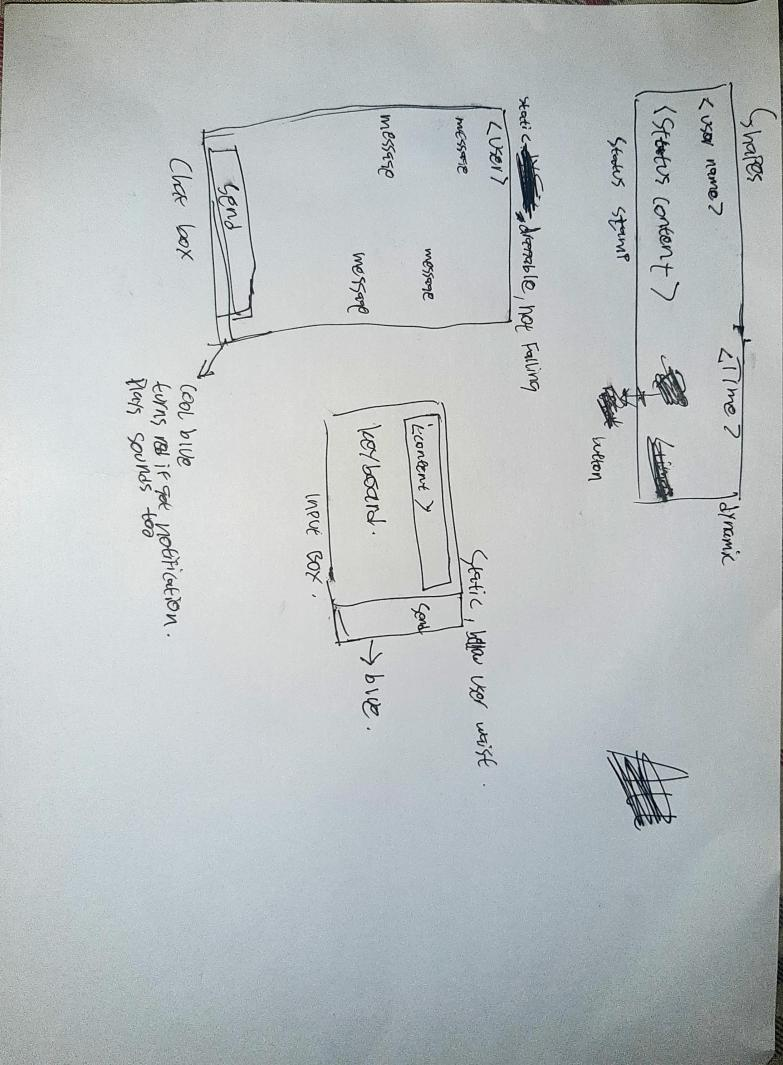 Shapes
<user name>
<Time>
dynamic
<Status content>
Status stamp
button
static, dragable, not falling
<user>
message
message
message
message
Send
Chat box
cool blue
turns red if get notification.
Plays sounds too
Static, below user waist.
<content>
Send
keyboard.
→ blue.
Input Box.